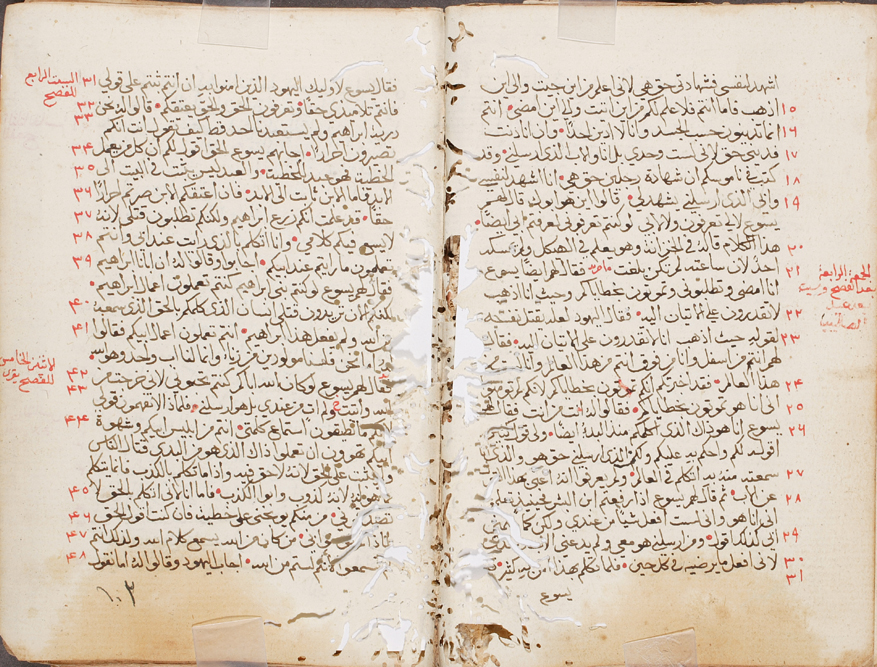 اشهد لنفسي فشهادتي حق هي لاني اعلم من اين جيت والى اين
١٥ اذهب فاما انتم فلا علم لكم من اين اتيت ولا الى اين امضي انتم
١٦ انما تدينون حسب الجسد وانا لا ادين احدا وان انا دنت
١٧ فديني حق لاني لست وحدي بل انا والاب الذي ارسلني وقد
١٨ كتب في ناموسكم ان شهادة رجلين حق هي انا اشهد لنفسي
١٩ وابي الذي ارسلني يشهد لي قالوا اين هو ابوك قال لهم
يسوع لا لي تعرفون ولا لابي لو كنتم تعرفوني لعرفتم ابي ايضا
٢٠ هذا الكلام قاله في الخزانة وهو يعلم في الهيكل ولم يمسكه
٢١ احد لان ساعته لم تكن بلغت قال لهم ايضا يسوع
انا امضي وتطلبوني وتموتون بخطاياكم وحيث انا اذهب
٢٢ لا تقدرون على الاتيان اليه فقال اليهود لعله يقتل نفسه
٢٣ لقوله حيث اذهب انا لا تقدرون على الاتيان اليه فقال
لهم انتم من اسفل وانا من فوق انتم من هذا العالم وانا لست من
٢٤ هذا العالم فقد اخبرتكم انكم تموتون بخطاياكم لانكم ان لم تومنوا
٢٥ اني انا هو تموتون بخطاياكم فقالوا له انت من انت فقال لهم
٢٦ يسوع انا هو ذاك الذي اكلمكم منذ البدء ايضا ولي قول كثير
اقوله لكم واحكم به عليكم ولكن الذي ارسلني حق هو والذي انا
٢٧ سمعته منه به اتكلم في العالم ولم يعرفوا انه اعني بهذا القول
٢٨ عن الاب ثم قال لهم يسوع اذا رفعتم ابن البشر فحينيذ تعلمون
اني انا هو واني لست افعل شيا من عندي ولكن كما علمني
٢٩ ابي كذلك اقول ومن ارسلني هو معي ولم يدعني الاب وحدي
٣٠ لاني افعل ما يرضيه في كل حين فلما تكلم بهذا امن به كثير
٣١
يسوع
السبت الرابع للفصح
٣١ فقال يسوع لاوليك اليهود الذين امنوا به ان انتم ثبتم على قولي
٣٢ فانتم تلاميذي حقا وتعرفون الحق والحق يعتقكم قالوا له نحن
٣٣ ذرية ابراهيم ولم يستعبدنا احد قط كيف تقول انت انكم
٣٤ تصيرون احرارا اجابهم يسوع الحق اقول لكم ان كل من يعمل
٣٥ الخطية فهو عبد الخطية والعبد ليس يثبت في البيت الى
٣٦ الابد فاما الابن ثابت الى الابد فان اعتقكم الابن صرتم احرارا
٣٧ حقا قد علمت انكم زرع ابراهيم ولكنكم تطلبون قتلي لانه
٣٨ لا يسع فيكم كلامي وانا اتكلم بالذي رايت عند ابي وانتم
٣٩ تعملون ما رايتم عند ابيكم اجابوا وقالوا له ان ابانا ابراهيم
قال لهم يسوع لو كنتم بني ابراهيم كنتم تعملون اعمال ابراهيم
٤٠ لكنكم الان تريدون قتلي انسان الذي كلمكم بالحق الذي سمعه
٤١ من الله ولم يفعل هذا ابراهيم انتم تعملون اعمال ابيكم فقالوا
له اما نحن فلسنا مولودين من زنا وانما لنا اب واحد وهو الله
٤٢ قال لهم يسوع لو كان الله اباكم كنتم تحبوني لاني خرجت من
٤٣ الله واتيت ولم ات من عندي بل هو ارسلني فلماذا لا تفهمون قولي
٤٤ لانكم ما تطيقون استماع كلمتي انتم من ابليس ابيكم وشهوة
ابيكم تهوون ان تعملوا ذاك الذي هو من البدي قتال الناس
ولم يثبت على الحق لانه لا حق فيه واذا ما تكلم بالكذب فانما يتكلم
٤٥ بما هو له لانه كذوب وابو الكذب فاما انا لاني اتكلم بالحق لا
٤٦ تصدقوني من منكم يوبخني على خطية فان كنت اقول الحق
٤٧ لماذا لا تومنوا بي من كان من الله يسمع كلام الله ولذلك انتم
٤٨ لم تسمعوا لانكم لستم من الله اجاب اليهود وقالوا له اما نقول
١٠٣